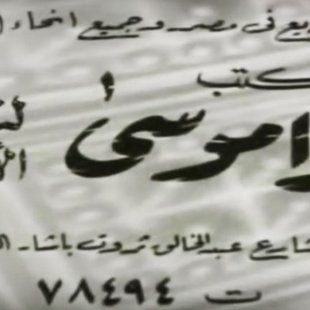 فى مصر وجميع انحاء
كتب
موسى
شارع عبدالخالق ثروت باشا
ت ٧٨٤٩٤